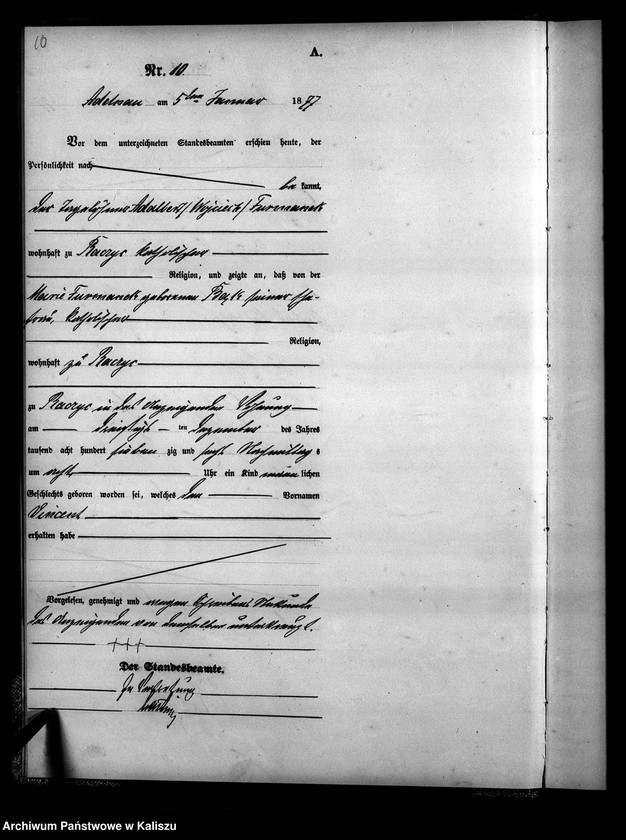 10
A.
Nr. 10.
Adelnau am 5ten Januar 1877
Vor dem unterzeichneten Standesbeamten erschien heute, der
Persönlichkeit nach
be kannt,
der Tagelöhner Adalbert /Wojciech/ Furmanek
wohnhaft zu Raczyc katholischer
Religion, und zeigte an, daß von der
Marie Furmanek geborenen Bąk seiner Ehe-
frau, katholischer
Religion,
wohnhaft zu Raczyc
zu Raczyc in des Anzeigenden Wohnung
am dreißigsten Dezember des Jahres
tausend acht hundert sieben zig und sechs Nachmittags
um acht Uhr ein Kind männ lichen
Geschlechts geboren worden sei, welches den Vornamen
Vincent
erhalten habe
Vorgelesen, genehmigt und wegen Schreibens Unkunde
des Anzeigenden von demselben unterkreuzt.
+++
Der Standesbeamte.
In Vertretung
Archiwum Państwowe w Kaliszu